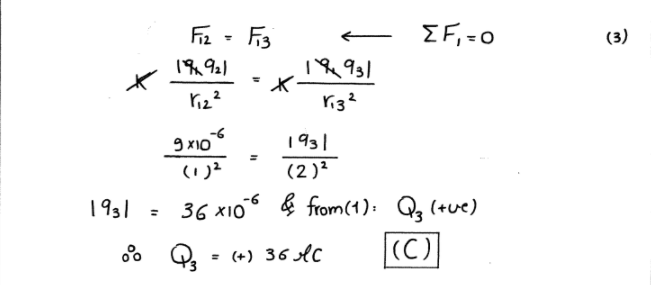 F₁₂ = F₁₃ ← ΣF₁ = 0 (3)
K |q₁ q₂| / r₁₂² = K |q₁ q₃| / r₁₃²
9×10⁻⁶ / (1)² = |q₃| / (2)²
|q₃| = 36 ×10⁻⁶ & from(1): Q₃ (+ve)
∴ Q₃ = (+) 36 μC (C)